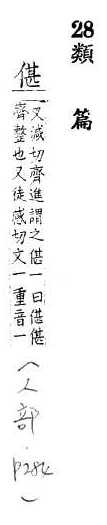 28類 篇
偡
叉減切齊進謂之偡一曰偡偡
齊整也又徒感切文一重音一
(人部. p284)